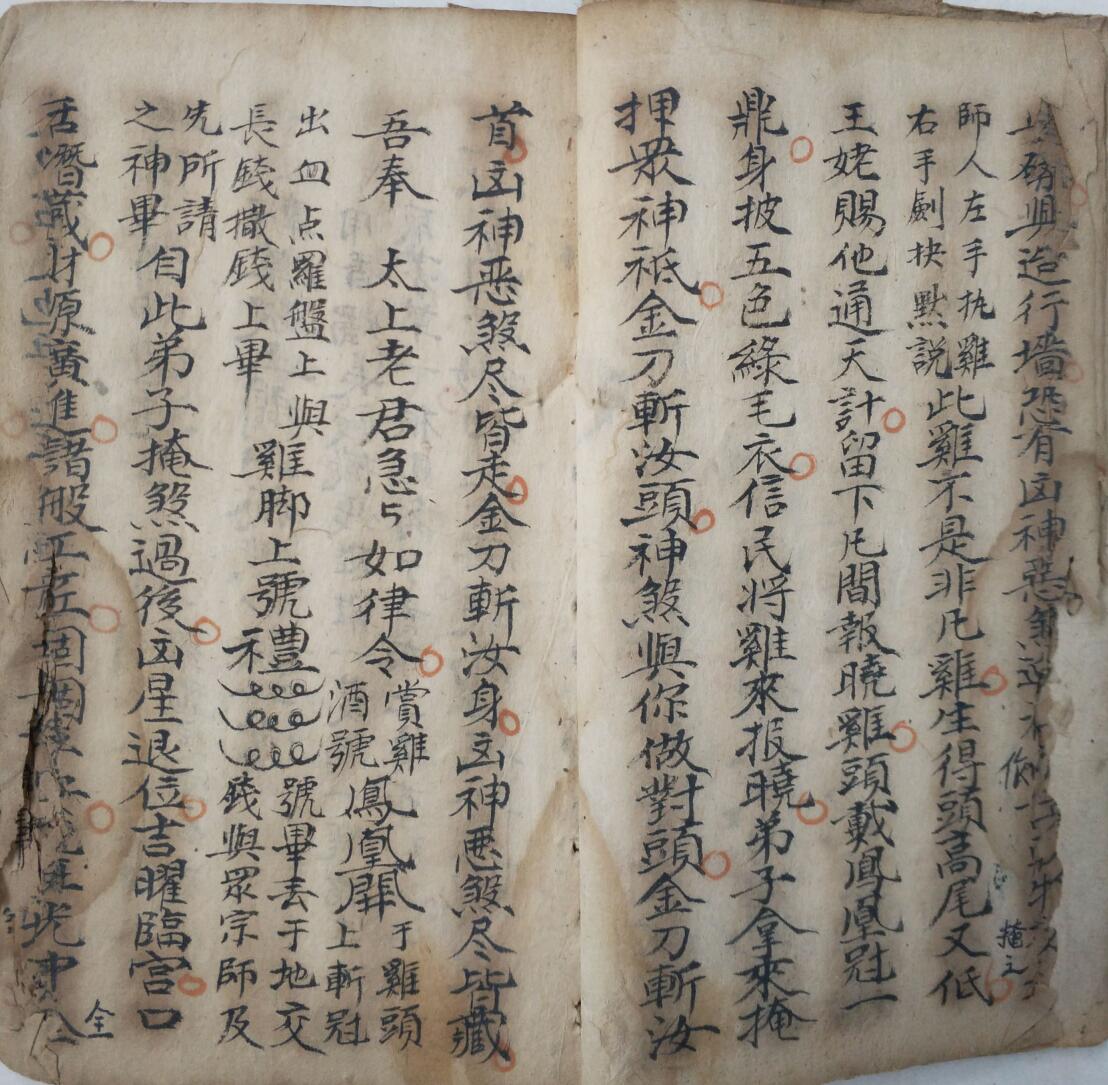 興造行墻恐有凶神惡
師人左手执雞
右手劍抉默説
此雞不是非凡雞生得頭高尾又低
掩之
王姥賜他通天計留下凡間報曉雞頭戴鳳凰冠一
鼎身披五色綠毛衣信民将雞來报曉弟子拿來掩
押眾神祗金刀斬汝頭神煞與你做對頭金刀斬汝
首凶神恶煞尽皆走金刀斬汝身凶神恶煞尽皆藏
吾奉 太上老君急ㄣ如律令
賞雞
酒號
鳳凰開
于雞頭
上斬冠
出血点羅盤上與
長錢撒錢上畢
雞脚上號禮
號畢丢于地交
錢與眾宗師及
先所請
之神畢
自此弟子掩煞過後凶星退位吉曜臨宮口
舌潛藏財源廣進諸般
仝